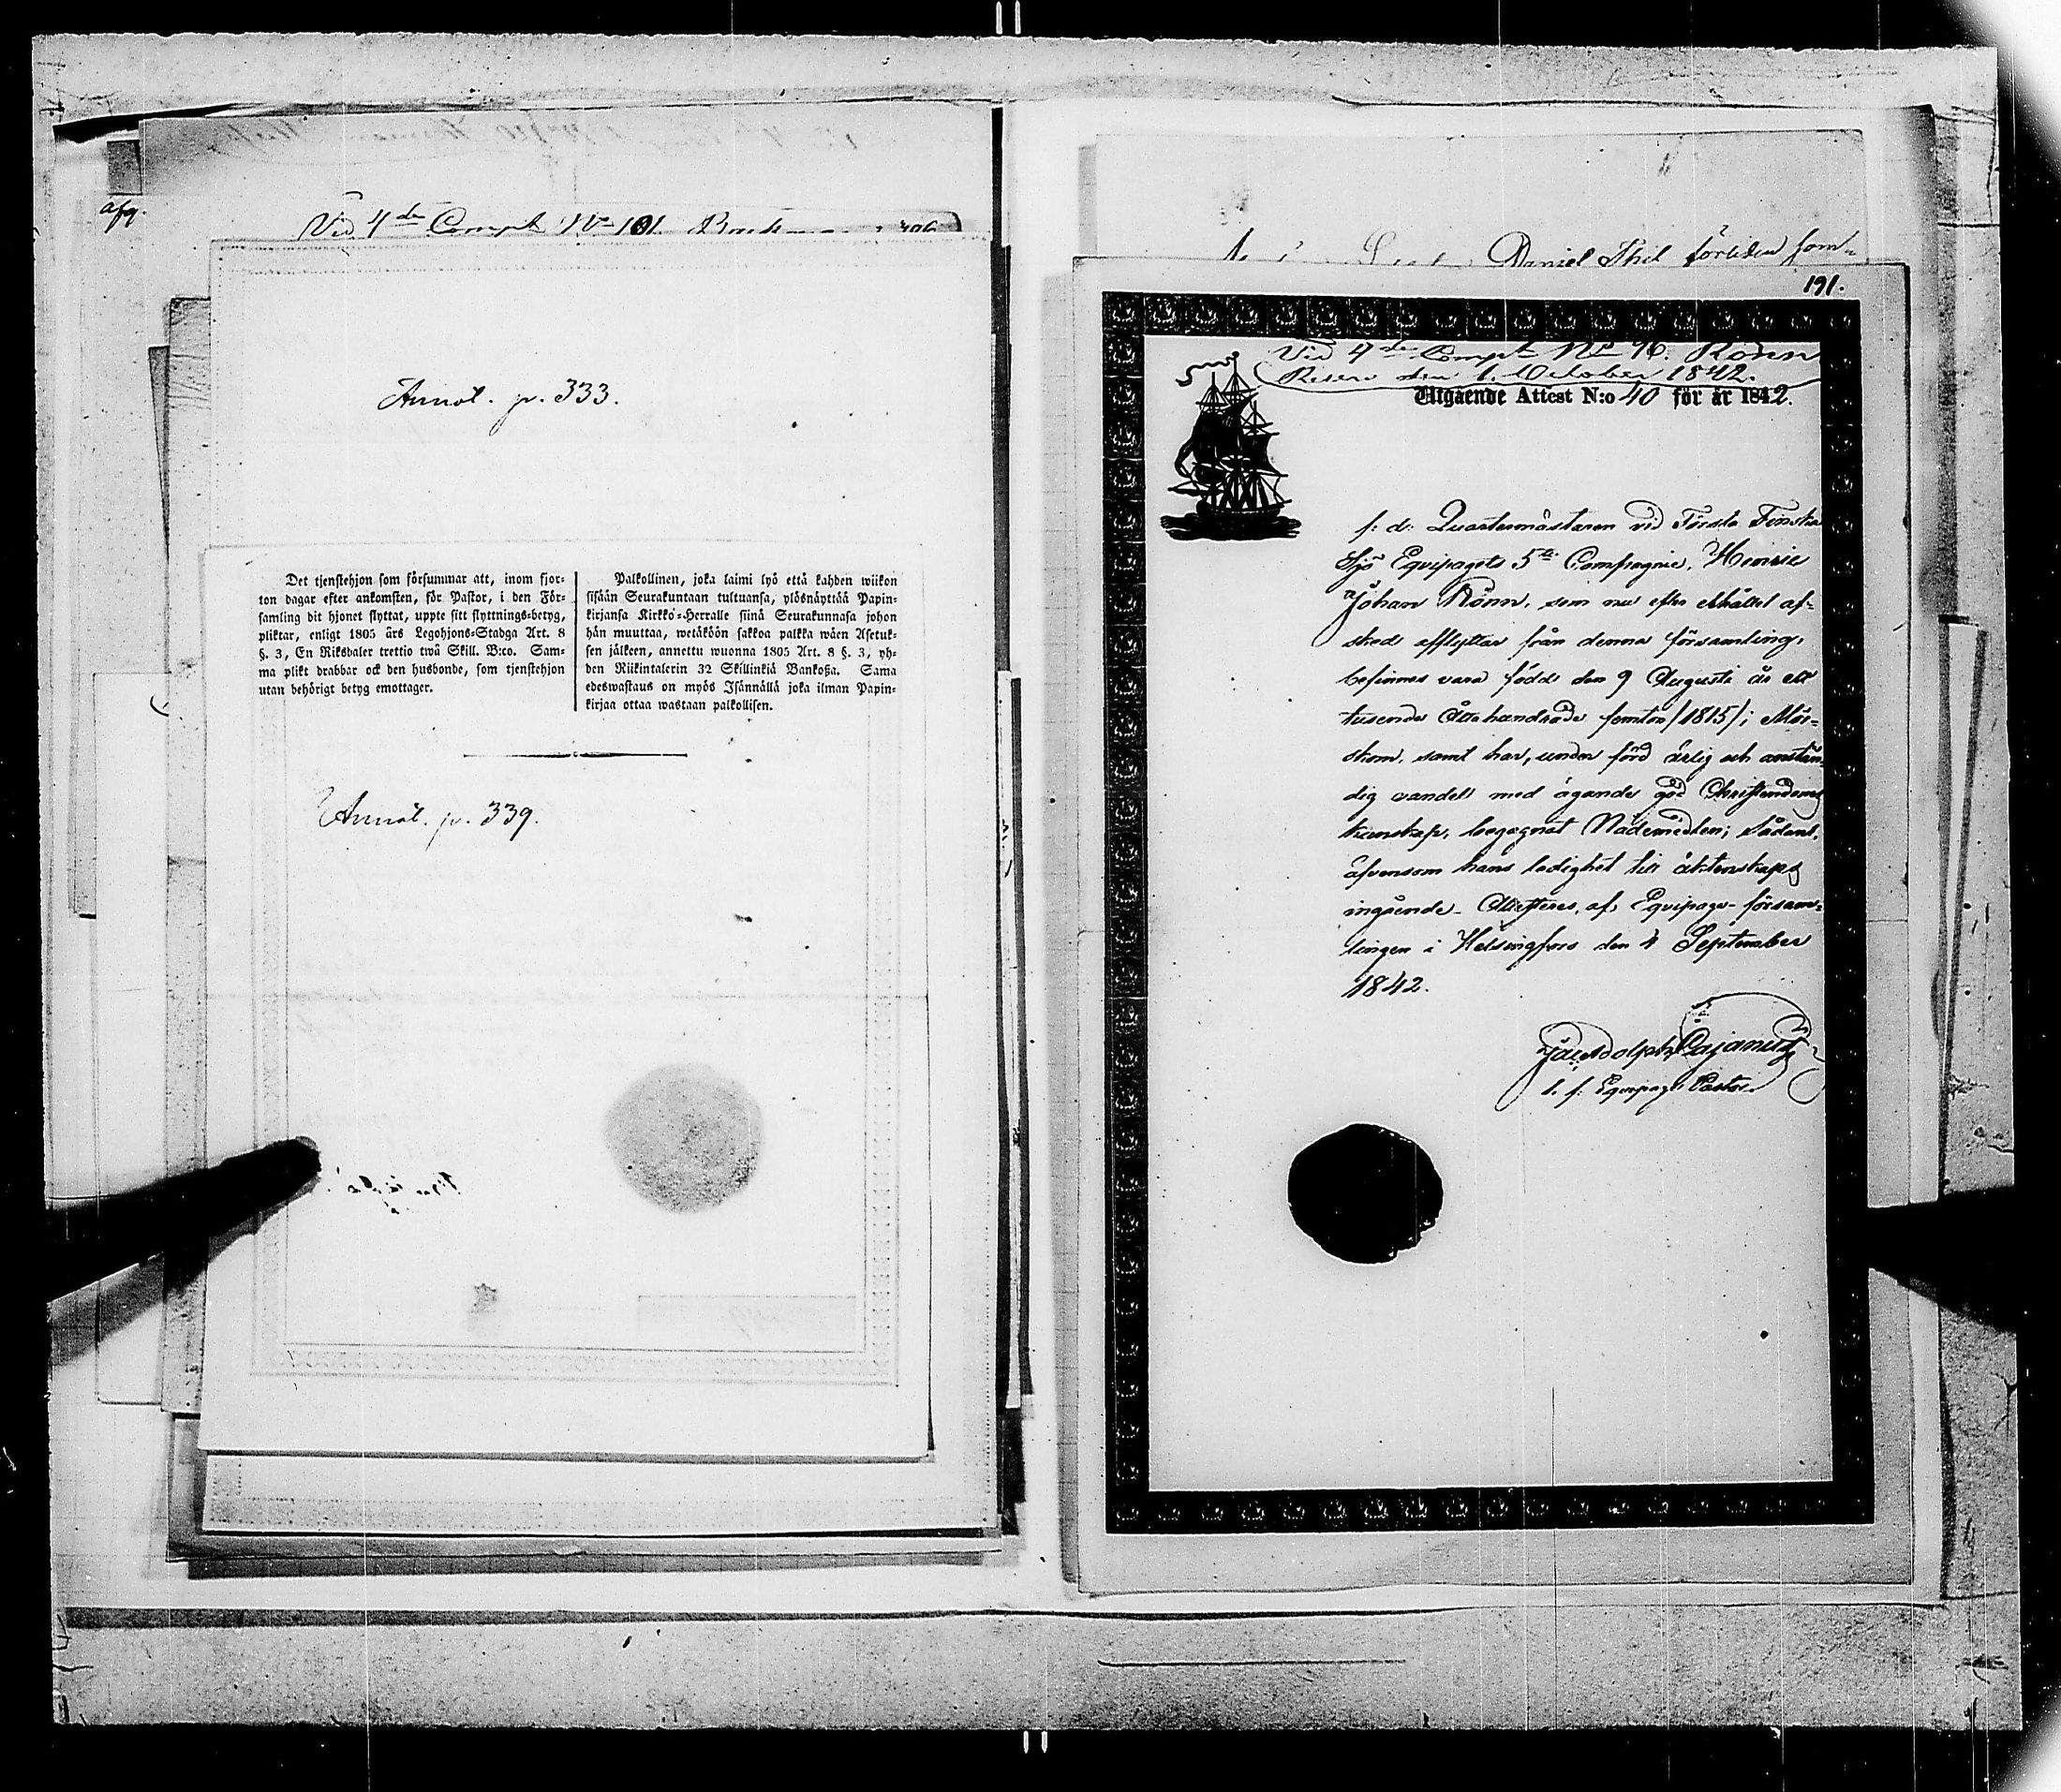 afg.
Vid 4de Comp. No 101.
Annot. p. 333.
Det tjenstehjon som försummar att, inom fjor-
ton dagar efter ankomsten, för Pastor, i den För-
samling dit hjonet flyttat, uppte sitt flyttnings-betyg,
pliktar, enligt 1805 års Legohjons-Stadga Art. 8
§. 3, En Riksdaler trettio twå Skill. B:co. Sam-
ma plikt drabbar ock den husbonde, som tjenstehjon
utan behörigt betyg emottager.
Palkollinen, joka laimi lyö että kahden wiikon
sisään Seurakuntaan tultuansa, ylösnäyttää Papin-
kirjansa Kirkko-Herralle siinä Seurakunnasa johon
hän muuttaa, wetäköön sakkoa palkka wäen Asetuk-
sen jälkeen, annettu wuonna 1805 Art. 8 §. 3, yh-
den Riikintalerin 32 Skillinkiä Bankoßa. Sama
edeswastaus on myös Isännällä joka ilman Papin-
kirjaa ottaa wastaan palkollisen.
Annot. p. 339.
Daniel Thil förliden som-
191.
Vid 4de Compt No 96. Rönn
den 1. October 1842.
Utgående Attest N:o 40 för år 1842.
f: d: Quartermästaren vid Första Finska
Sjö Equipagets 5te Compagnie, Henric
Johan Rönn, som nu efter erhållet af-
sked afflyttar från denna församling,
befinnes vara född den 9 Augusti år ett
tusende åttahundrade femton /1815/ i Mör-
skom, samt har, under förd ärlig och anstän-
dig vandel med ägande god Christendoms
kunskap, begagnat Nådemedlen; sådant,
äfvensom hans ledighet till äktenskaps
ingående Attesteras, af Equipage-försam-
lingen i Helsingfors den 4 September
1842.
Adolph Cajanus
Equipage Pastor